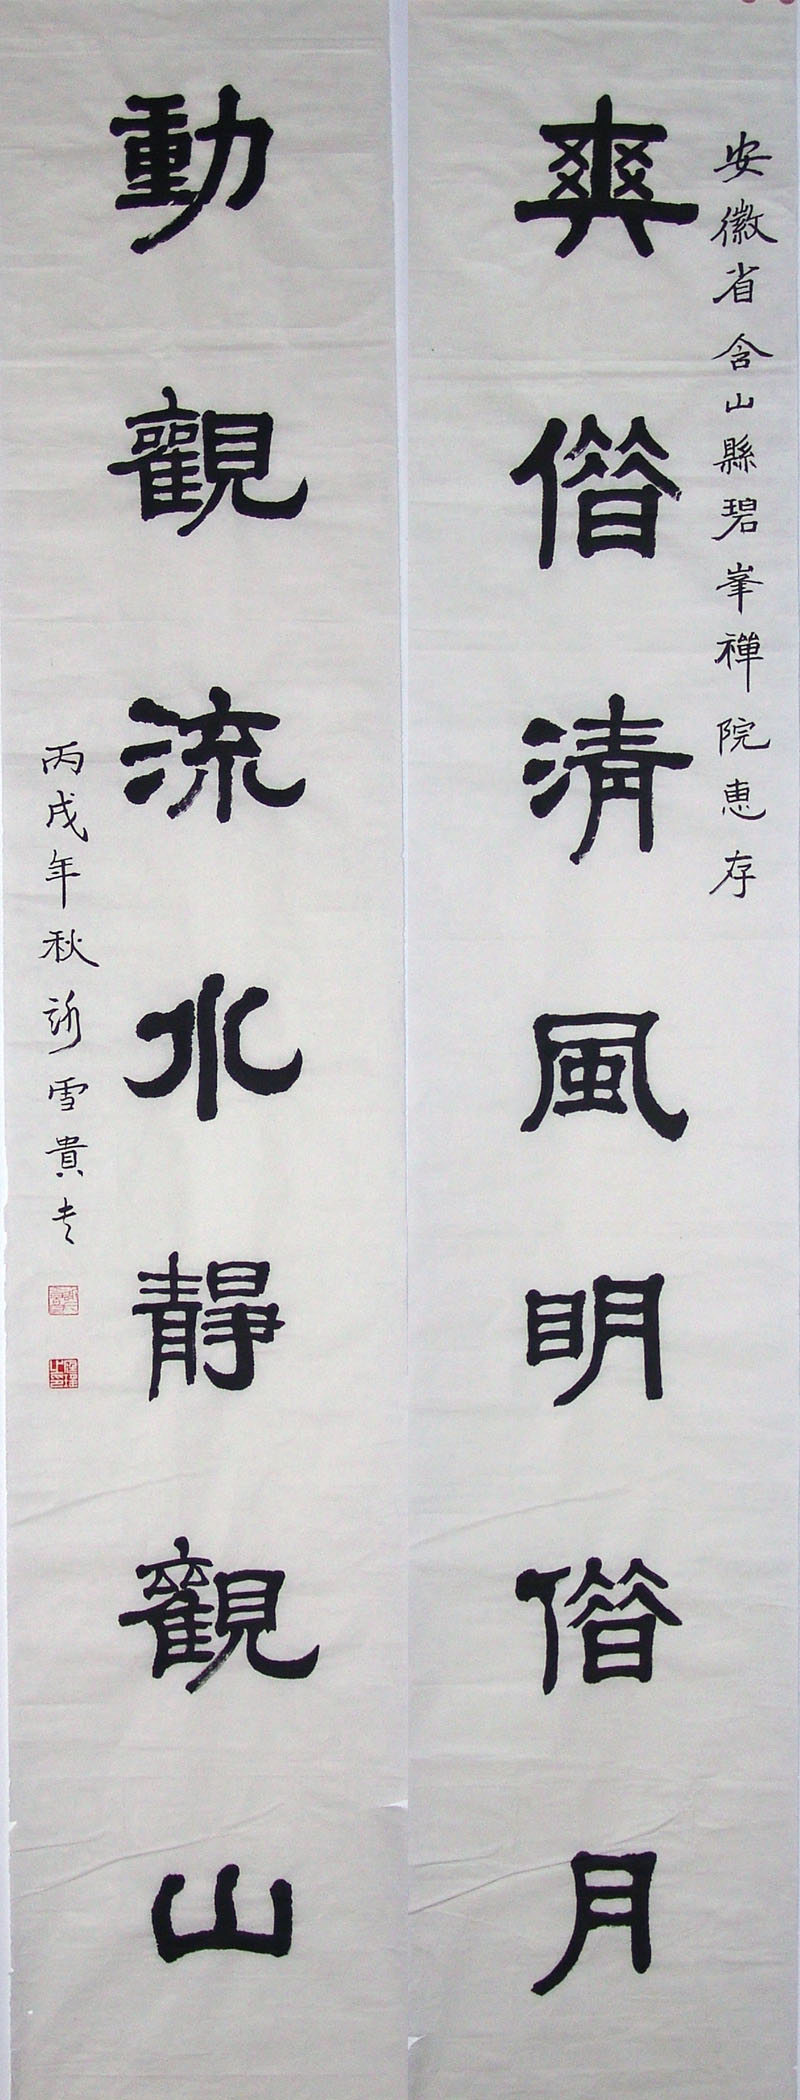 安徽省含山縣碧峯禪院惠存
爽借清風明借月
動觀流水靜觀山
丙戌年秋 雪貴